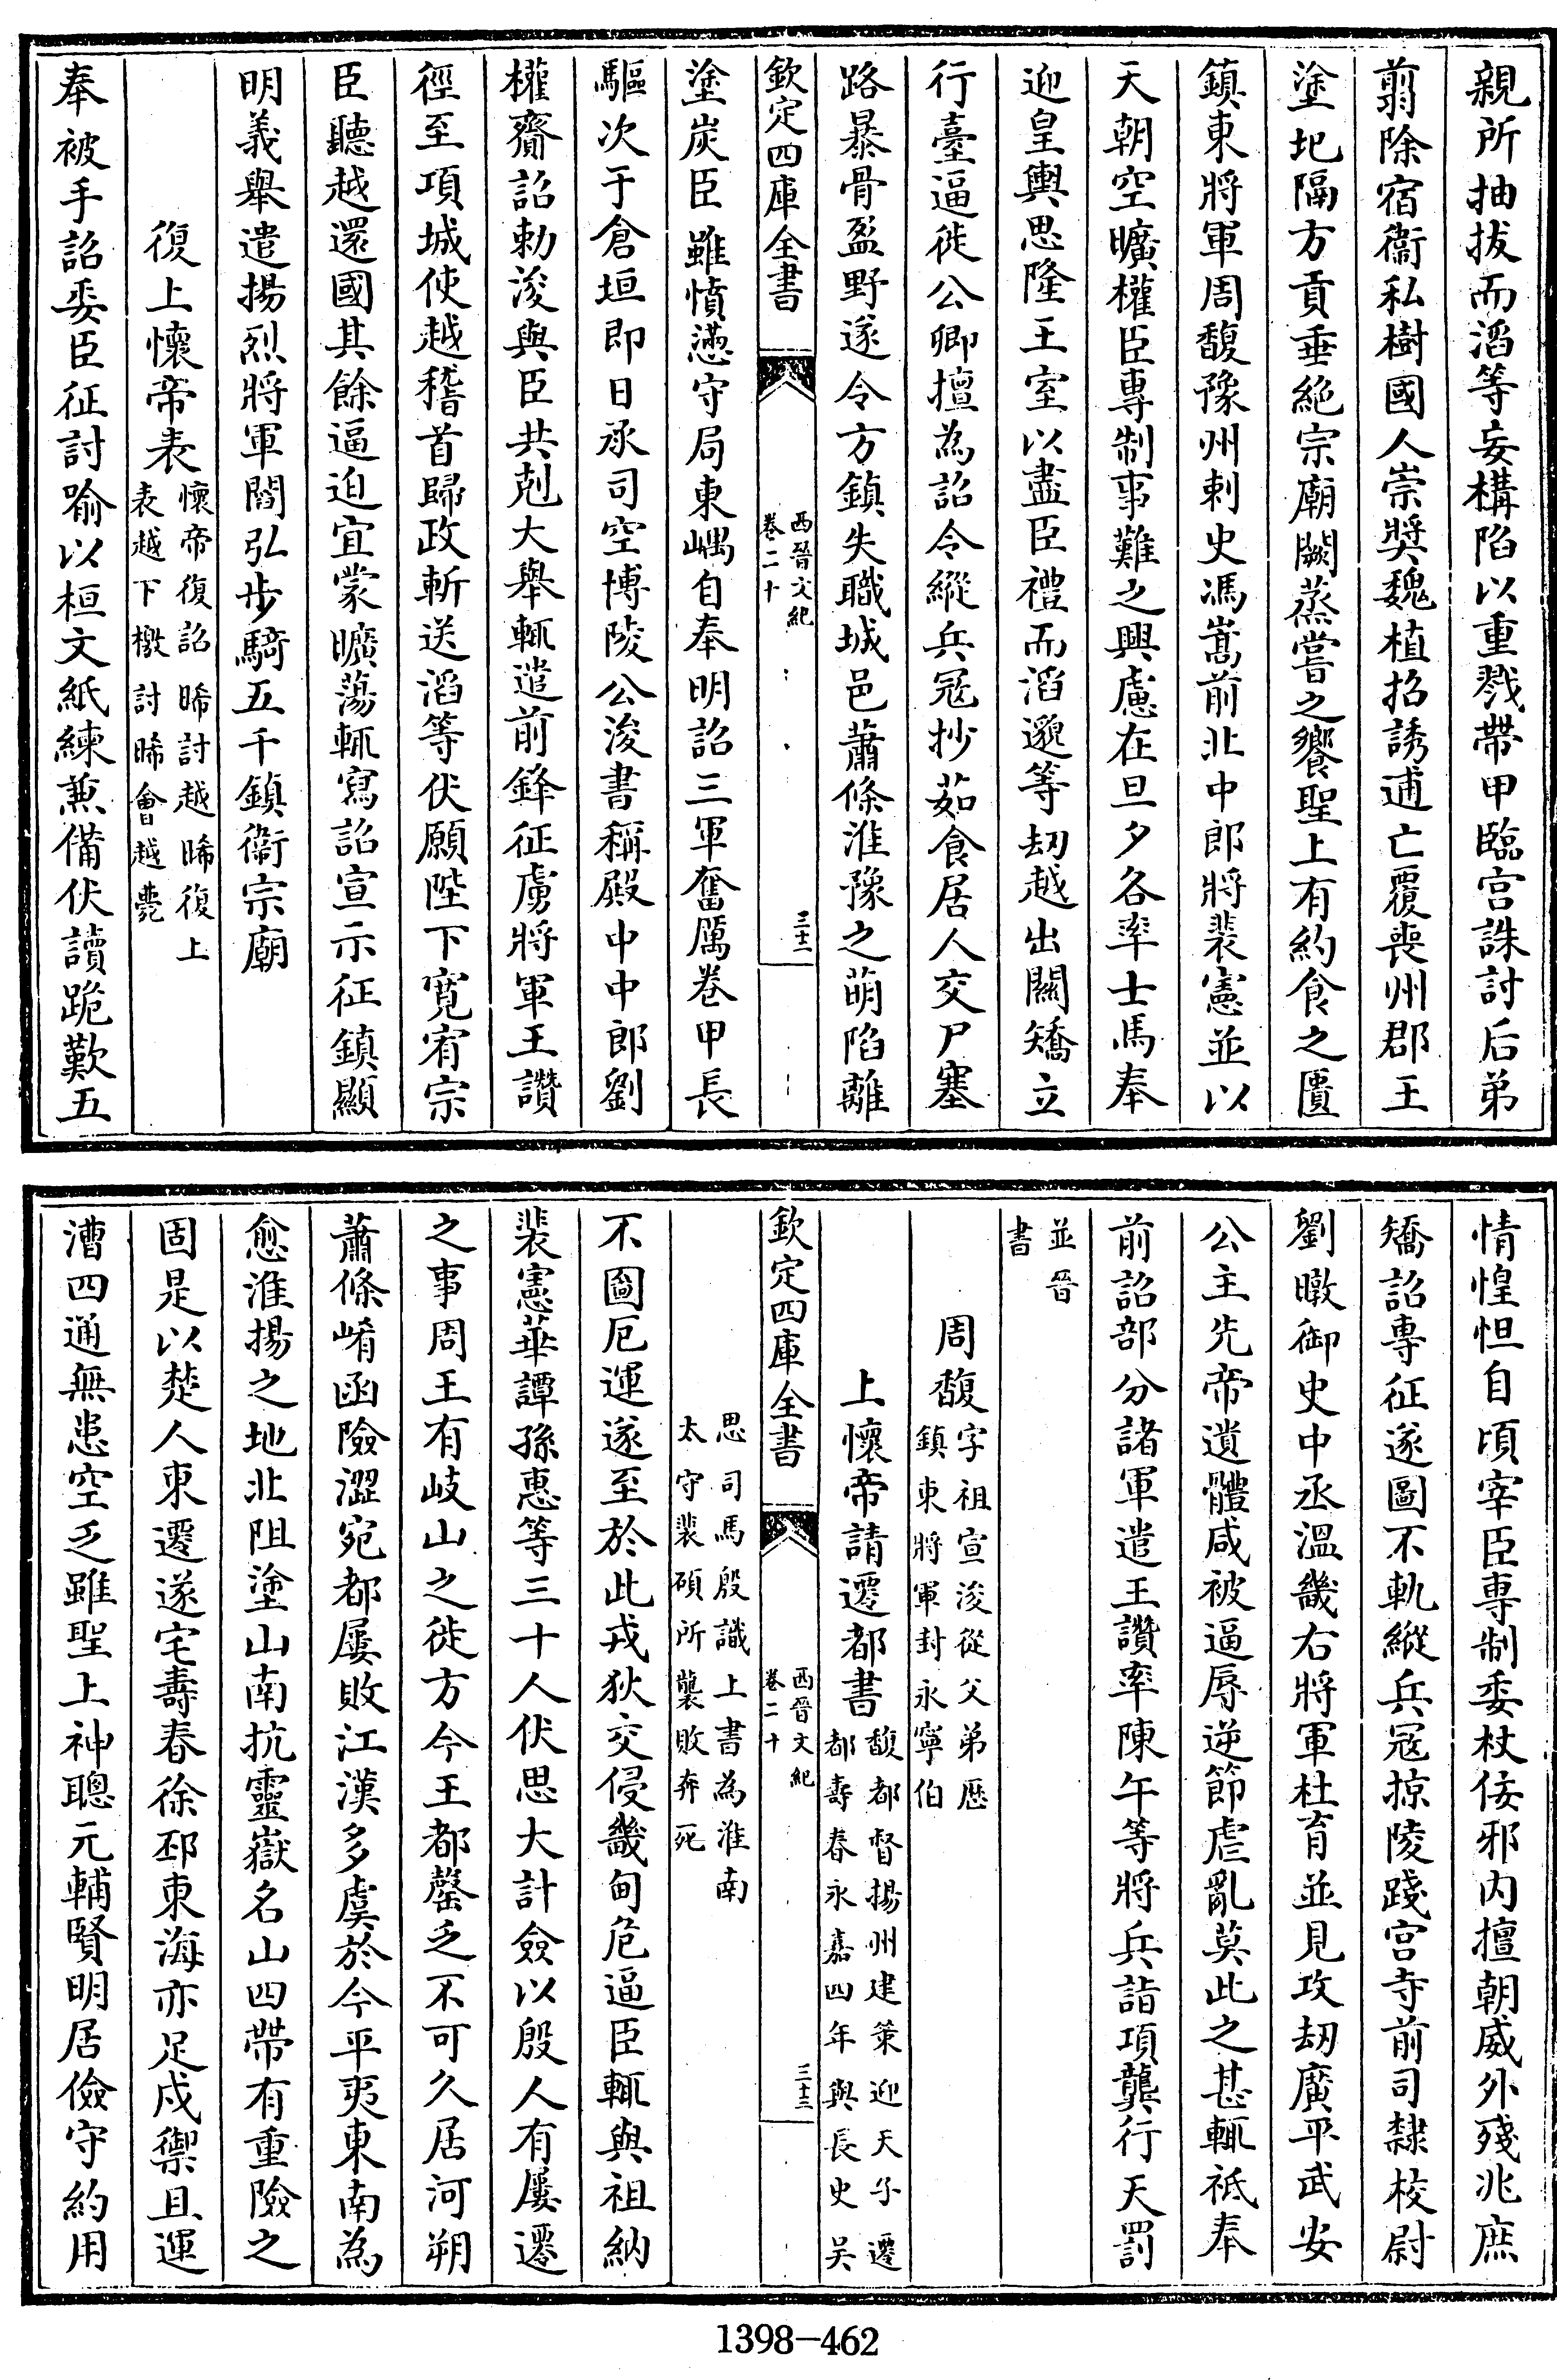 親所抽拔而滔等妄構陷以重戮帶甲臨宫誅討后弟
翦除宿衞私樹國人崇奬魏植招誘逋亡覆喪州郡王
塗圮隔方貢乖絶宗廟闕蒸嘗之饗聖上有約食之匱
鎮東將軍周馥豫州刺史馮嵩前北中郎將裴憲並以
天朝空曠權臣專制事難之興慮在旦夕各率士馬奉
迎皇輿思隆王室以盡臣禮而滔邈等刼越出關矯立
行臺逼徙公卿擅為詔令縱兵冦抄茹食居人交尸塞
路暴骨盈野遂令方鎮失職城邑蕭條淮豫之萌陷離
欽定四庫全書
西晉文紀
卷二十
三十二
塗炭臣雖憤懣守局東嵎自奉明詔三軍奮厲卷甲長
驅次于倉垣即日承司空博陵公浚書稱殿中中郎劉
權齎詔勅浚與臣共剋大舉輒遣前鋒征虜將軍王讚
徑至項城使越稽首歸政斬送滔等伏願陛下寛宥宗
臣聽越還國其餘逼迫宜蒙曠蕩輒寫詔宣示征鎮顯
明義舉遣揚烈將軍閻弘步騎五千鎮衞宗廟
復上懷帝表
懷帝復詔晞討越晞復上
表越下檄討晞會越薨
奉被手詔委臣征討喻以桓文紙練兼備伏讀跪歎五
情惶怛自頃宰臣専制委杖佞邪内擅朝威外殘兆庶
矯詔專征遂圖不軌縱兵冦掠陵踐宫寺前司隸校尉
劉暾御史中丞溫畿右將軍杜育並見攻刼廣平武安
公主先帝遺體咸被逼辱逆節虐亂莫此之甚輒祇奉
前詔部分諸軍遣王讚率陳午等將兵詣項龔行天罰
並晉
書
周馥
字祖宣浚從父弟歴
鎮東將軍封永寧伯
上懷帝請遷都書
馥都督揚州建策迎天子遷
都壽春永嘉四年與長史吴
欽定四庫全書
西晉文紀
卷二十
三十三
思司馬殷識上書為淮南
太守裴碩所襲敗奔死
不圖厄運遂至於此戎狄交侵畿甸危逼臣輒與祖納
裴憲華譚孫惠等三十人伏思大計僉以殷人有屢遷
之事周王有岐山之徙方今王都罄乏不可久居河朔
蕭條崤函險澀宛都屢敗江漢多虞於今平夷東南為
愈淮揚之地北阻塗山南抗靈嶽名山四帶有重險之
固是以楚人東遷遂宅壽春徐邳東海亦足戍禦且運
漕四通無患空乏雖聖上神聰元輔賢明居儉守約用
1398-462